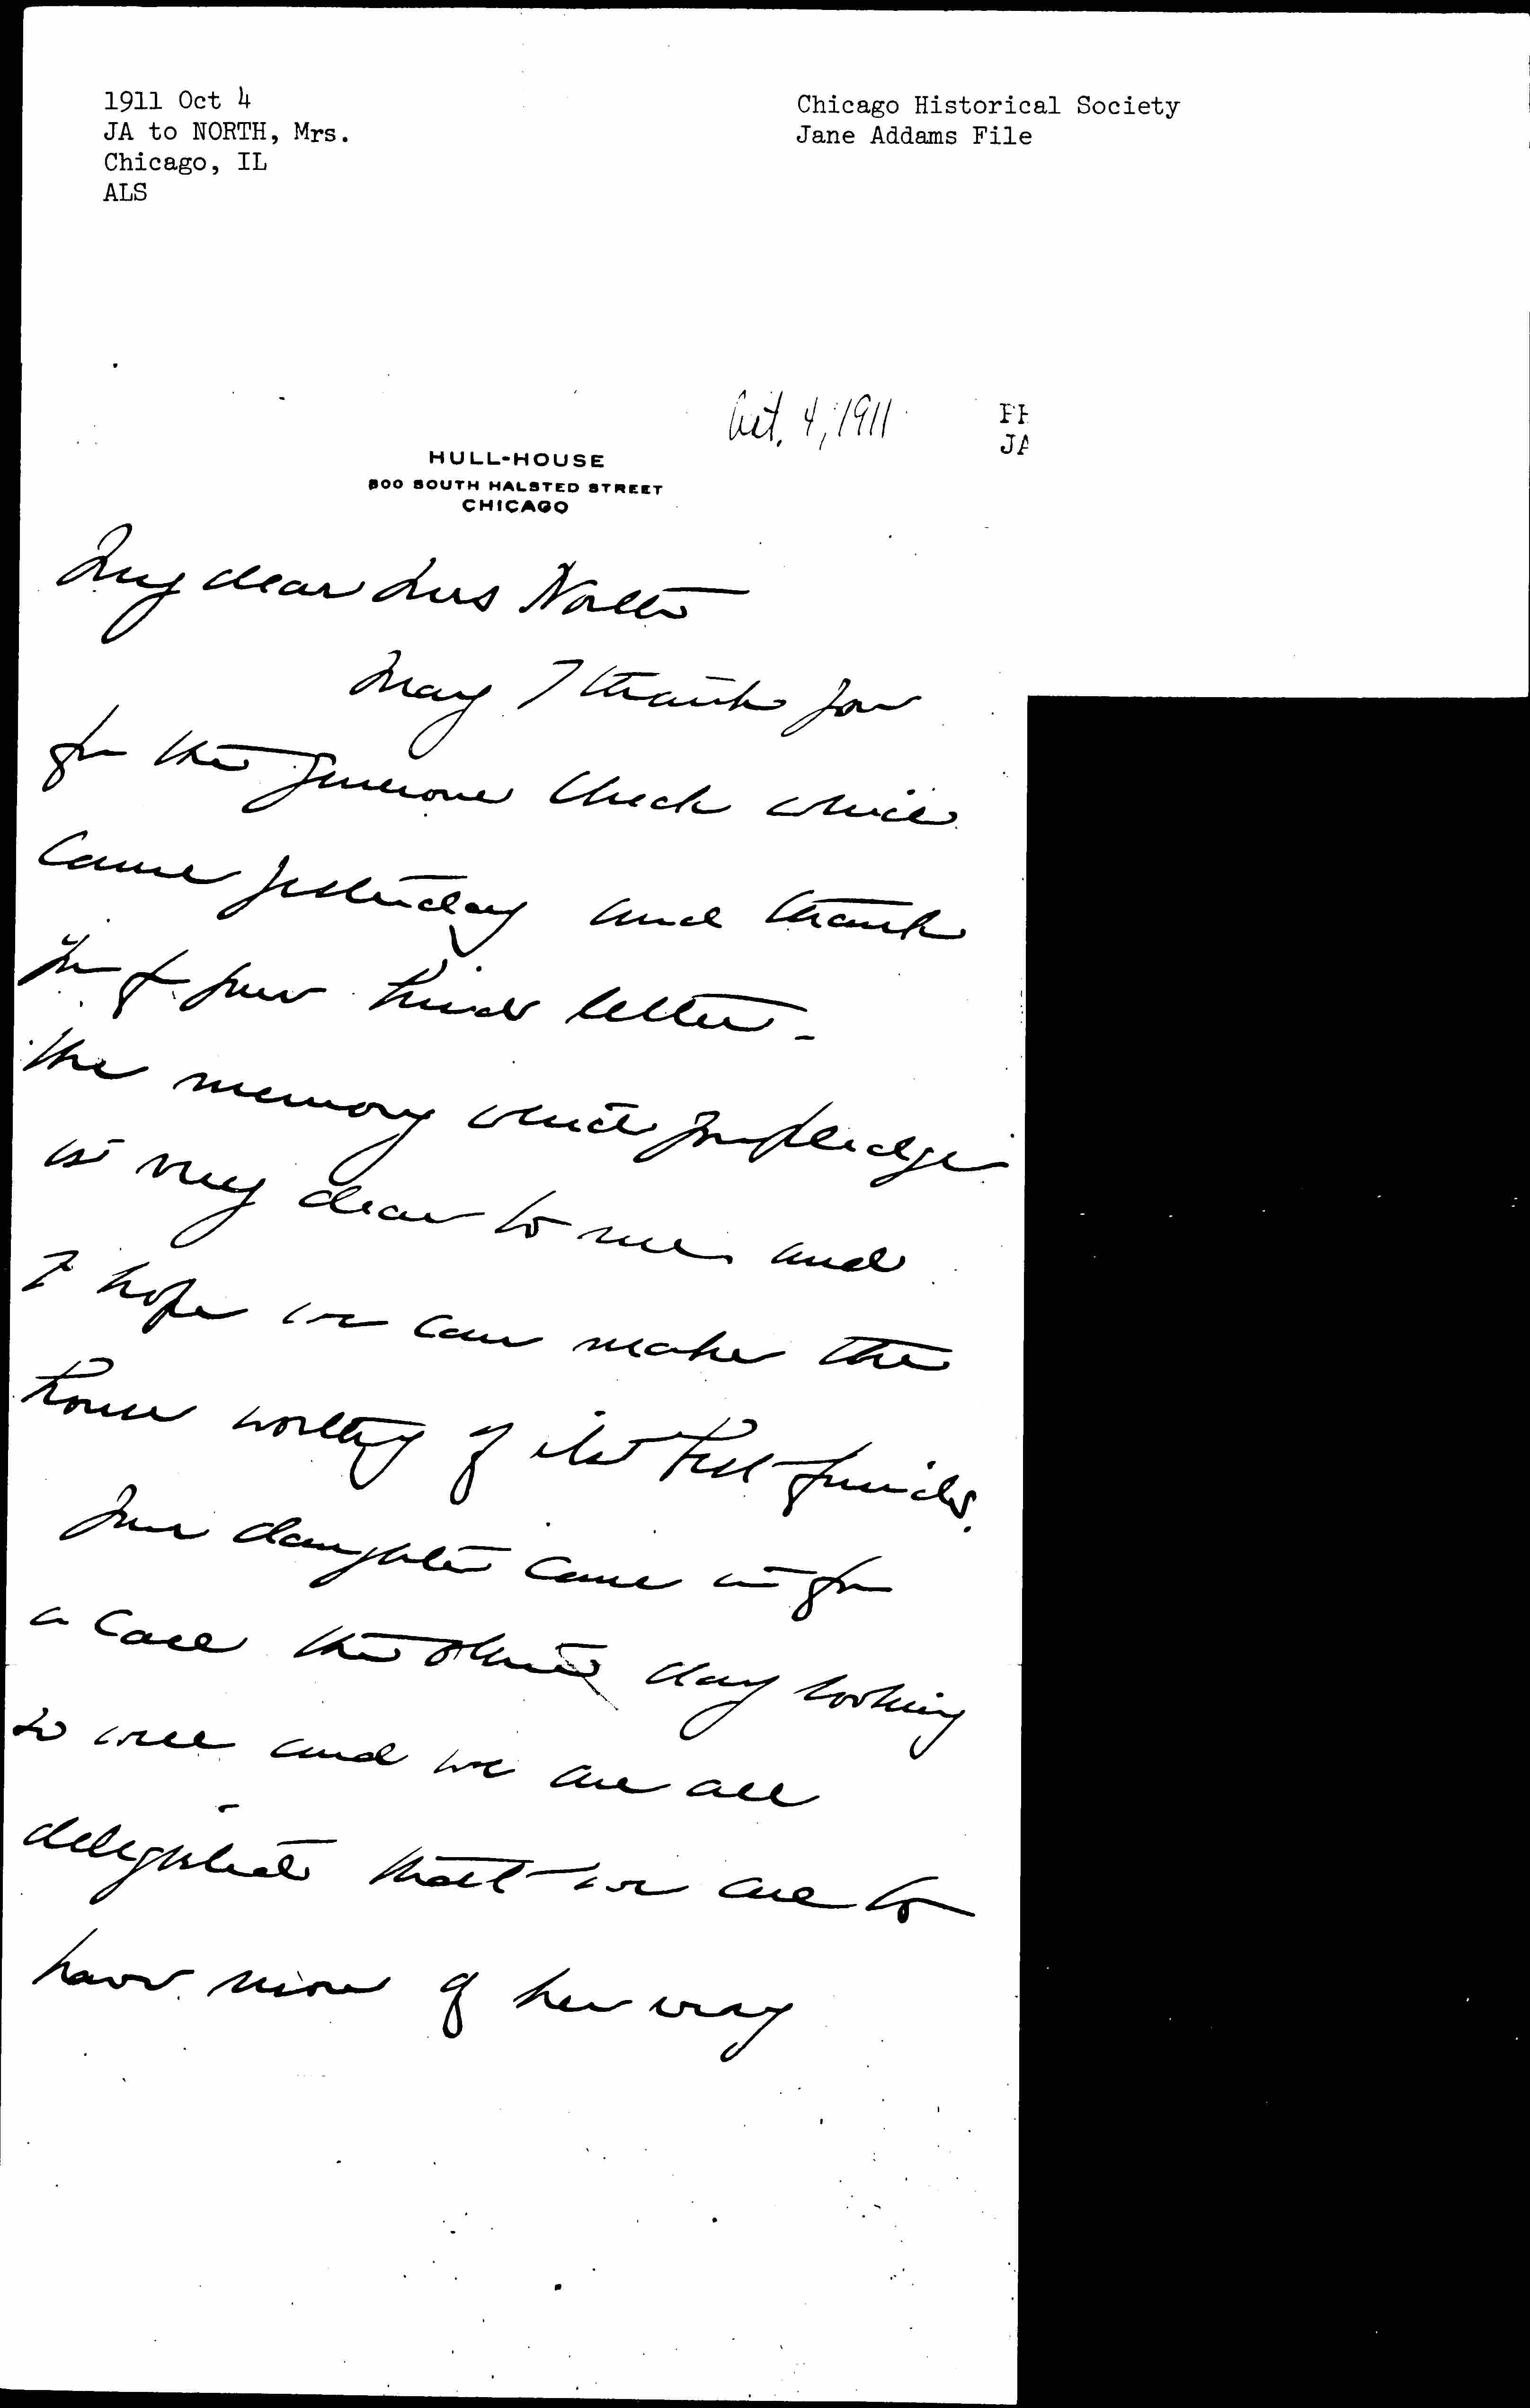 1911 Oct 4
JA to NORTH, Mrs.
Chicago, IL
ALS
Chicago Historical Society
Jane Addams File
Oct. 4, 1911
HULL-HOUSE
800 SOUTH HALSTED STREET
CHICAGO
My dear Mrs North
May I thank you
for the generous check which
came yesterday and thank
you for your kind letter -
The memory which you pledge
is very dear to me and
I hope we can make the
house worthy of its best friends.
Your daughter came in for
a call the other day looking
so well and we are all
delighted that we are to
have more of her